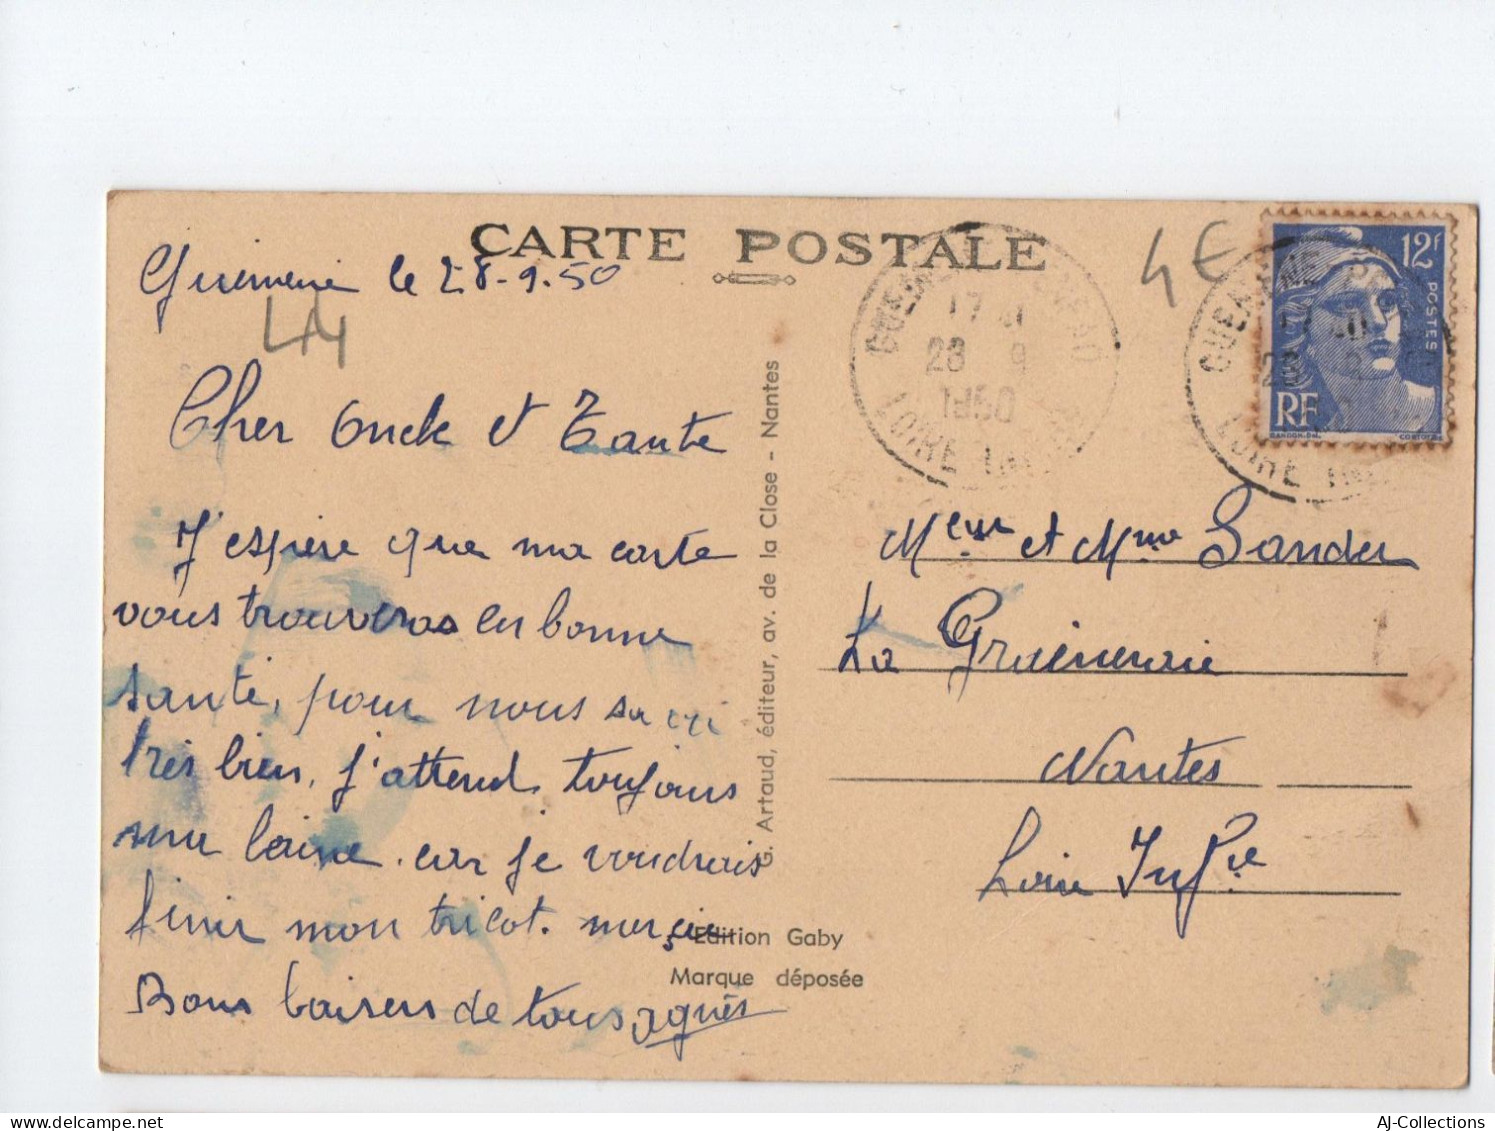 CARTE POSTALE
le 28-9-50
44
Cher Oncle et Tante
J'espère que ma carte
vous trouveras en bonne
santé, pour nous sa va
très bien, j'attend toujours
ma laine. car je voudrais
finir mon tricot. merçie
Bons baisers de tous agnès
G. Artaud, éditeur, av. de la Close - Nantes
Edition Gaby
Marque déposée
4€
12f
POSTES
RF
17
28 9
1950
LOIRE INF
GUEMENE
LOIRE INF
Mr et Mme Sander
La
Nantes
Loire Infre
AJ-Collections